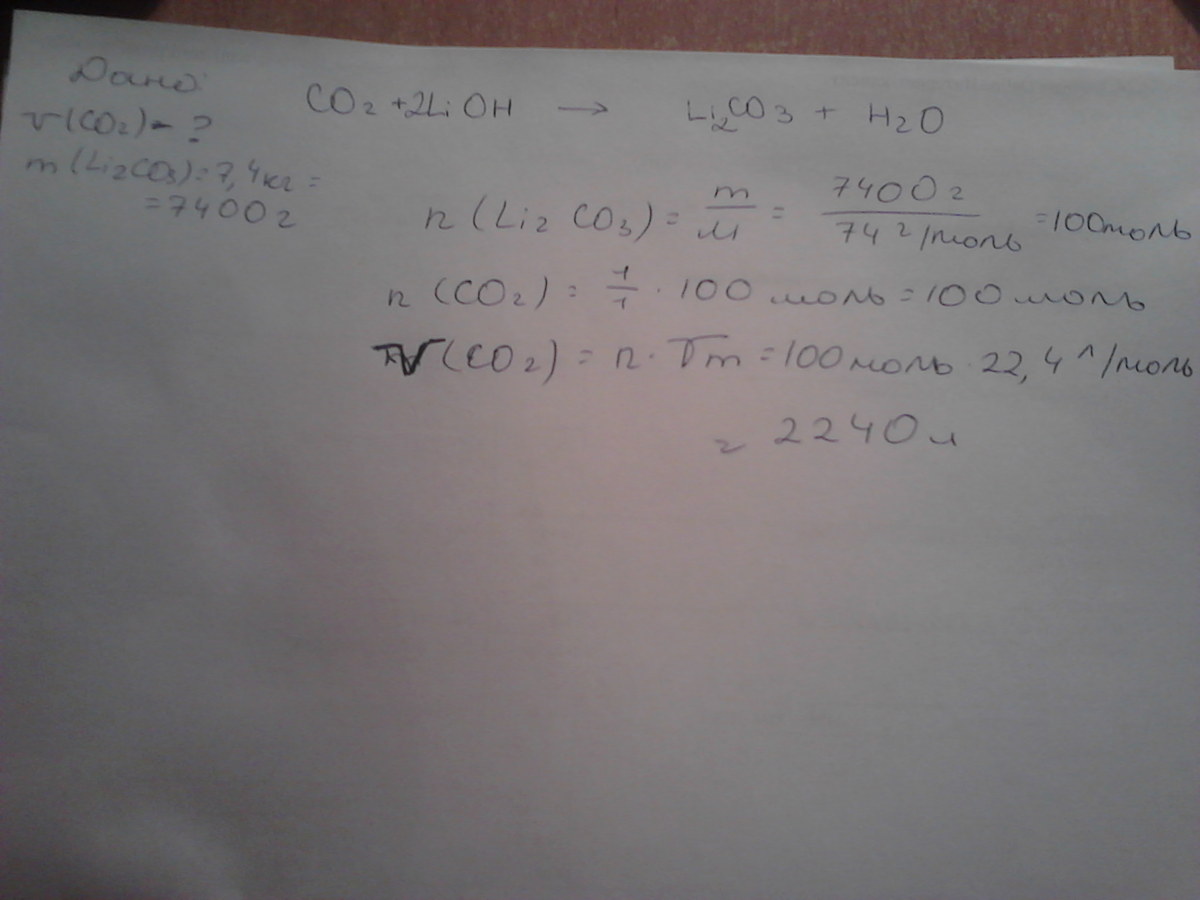 Дано:
V(CO2) - ?
m(Li2CO3) = 7,4кг =
= 7400г
CO2 + 2LiOH → Li2CO3 + H2O
n(Li2CO3) = m/M = 7400г / 74г/моль = 100моль
n(CO2) = 1/1 · 100 моль = 100 моль
V(CO2) = n · Vm = 100моль · 22,4 л/моль
= 2240л